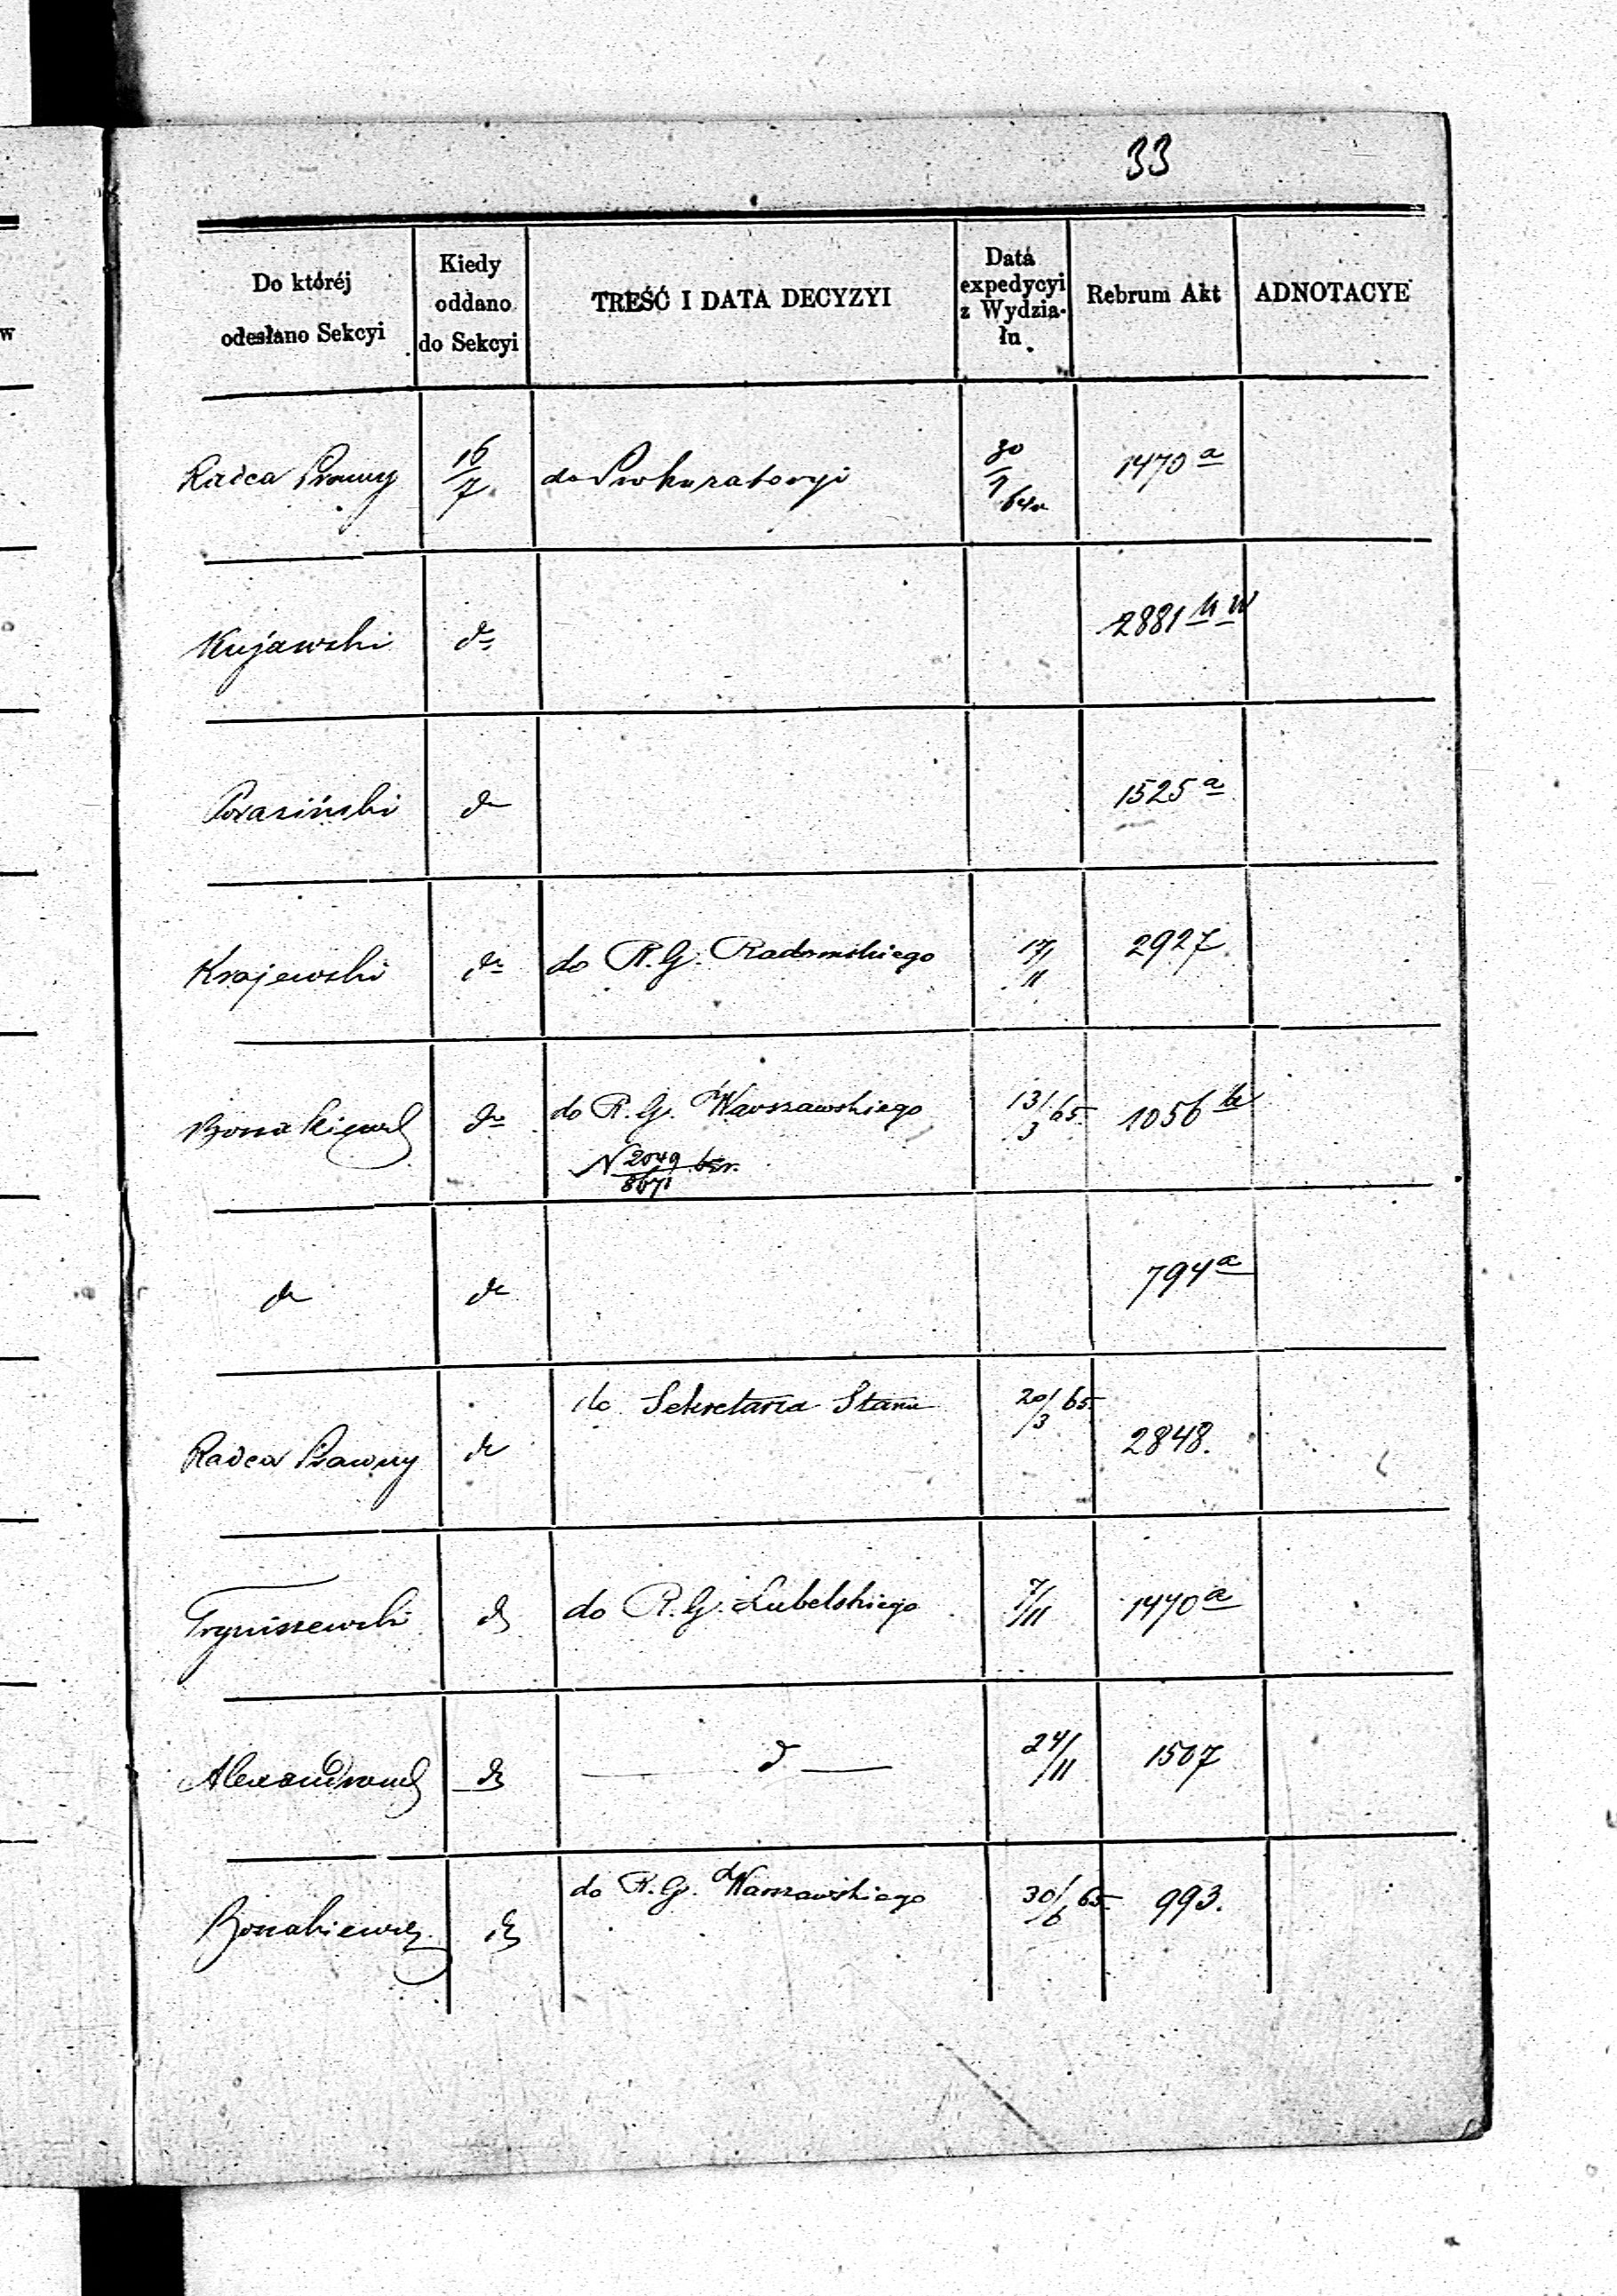 33
Do któréj odesłano Sekcyi | Kiedy oddano do Sekcyi | TREŚĆ I DATA DECYZYI | Data expedycyi z Wydziału | Rebrum Akt | ADNOTACYE
Radca Prawny | 16/7 | do Prokuratoryi | 30/ 64r | 1470 a
Kujawski | do | 2881
do | 1525 a
Krajewski | do | do R. G. Radomskiego | 17/11 | 2927
do | do R. G. Warszawskiego | 13/3 65 | 1056
N 2049/8671 65r.
do | do | 794 a
Radca Prawny | do | do Sekretarza Stanu | 20/3 65 | 2848.
Tryniszewski | do | do R. G. Lubelskiego | 7/11 | 1470 a
do | — do — | 24/11 | 1507
do | do R. G. Warszawskiego | 30/6 65 | 993.
w